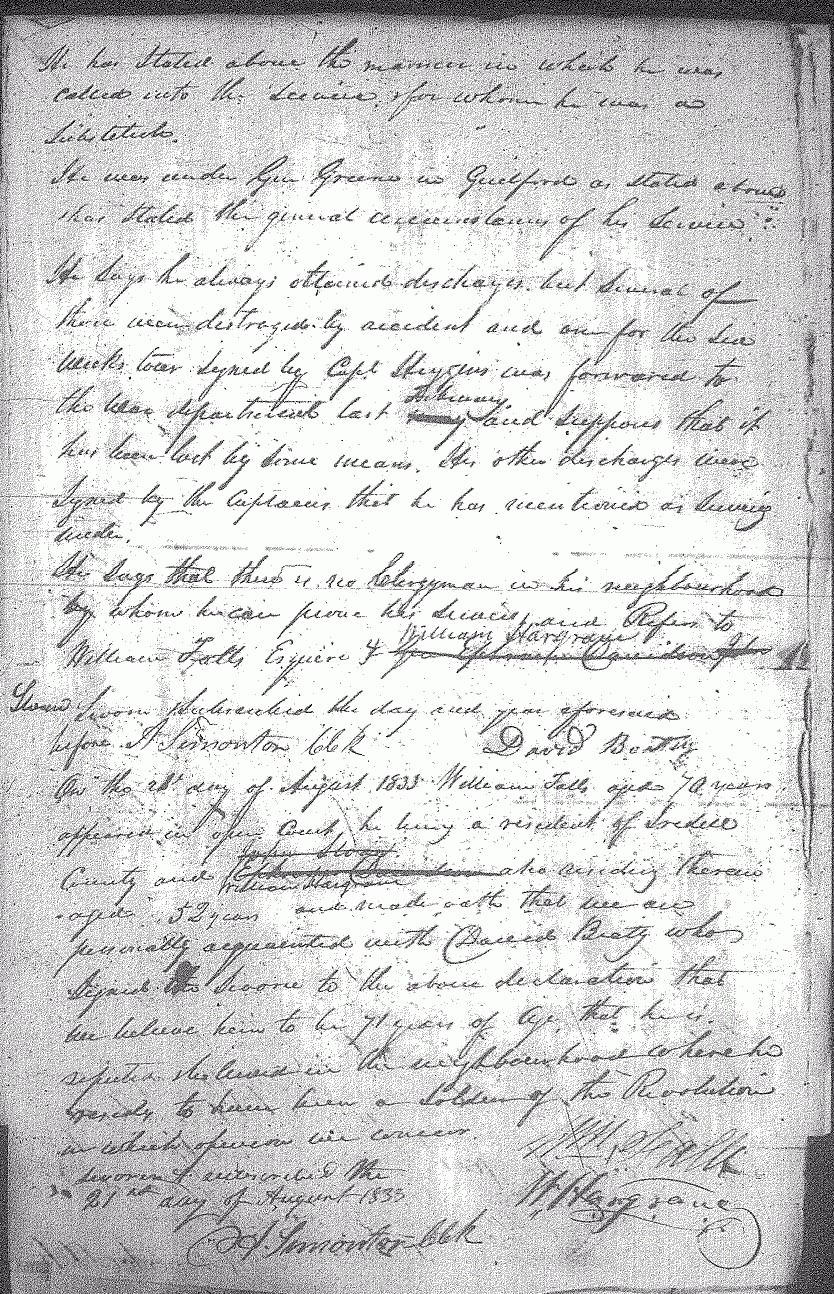 He has Stated above the manner in which he was
called into the Service, & for whom he was a
Substitute.
He was under Gen Greene in Guilford as stated above
& has stated the general circumstances of his Service.
He Says he always obtained discharges. but Several of
them were distroyed by accident and one for the Six
weeks tour signed by Capt Higgins was forwarded to
February
the War department last and Supposes that it
has been lost by Some means. His other discharges were
Signed by the Captains that he has mentioned as Serving
under.
He Says that there is no Clergyman in his neighbourhood
by whom he can prove his Services and Refers to
William Hargrave
William Falls Esquire &
Sworn Sworn & Subscribed the day and year aforesaid
before A Simonton Clk David Beaty
On the 21st day of August 1833 William Falls aged 70 years
appeared in open Court he being a resident of Iredell
John
County and also residing therein
William Hargrave
aged 52 years and made oath that we are
personally acquainted with David Beaty who
Signed & Swore to the above declaration that
we believe him to be 71 years of Age, that he is
reputed & believed in the neighbourhood where he
resides to have been a Soldier of the Revolution
in which opinion we concur.
Sworn & subscribed the Wm Falls
21st day of August 1833 W Hargrave
A. Simonton Clk